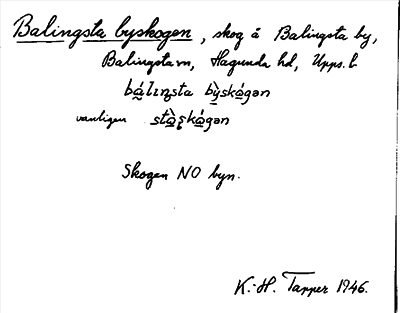 Balingsta byskogen, skog å Balingsta by,
Balingsta sn, Hagunda hd, Upps. l.
bá̱lɪŋsta bỳskå̱gən
vanligen stà̱ʂkå̱gən
Skogen NO byn.
K.-H. Tapper 1946.